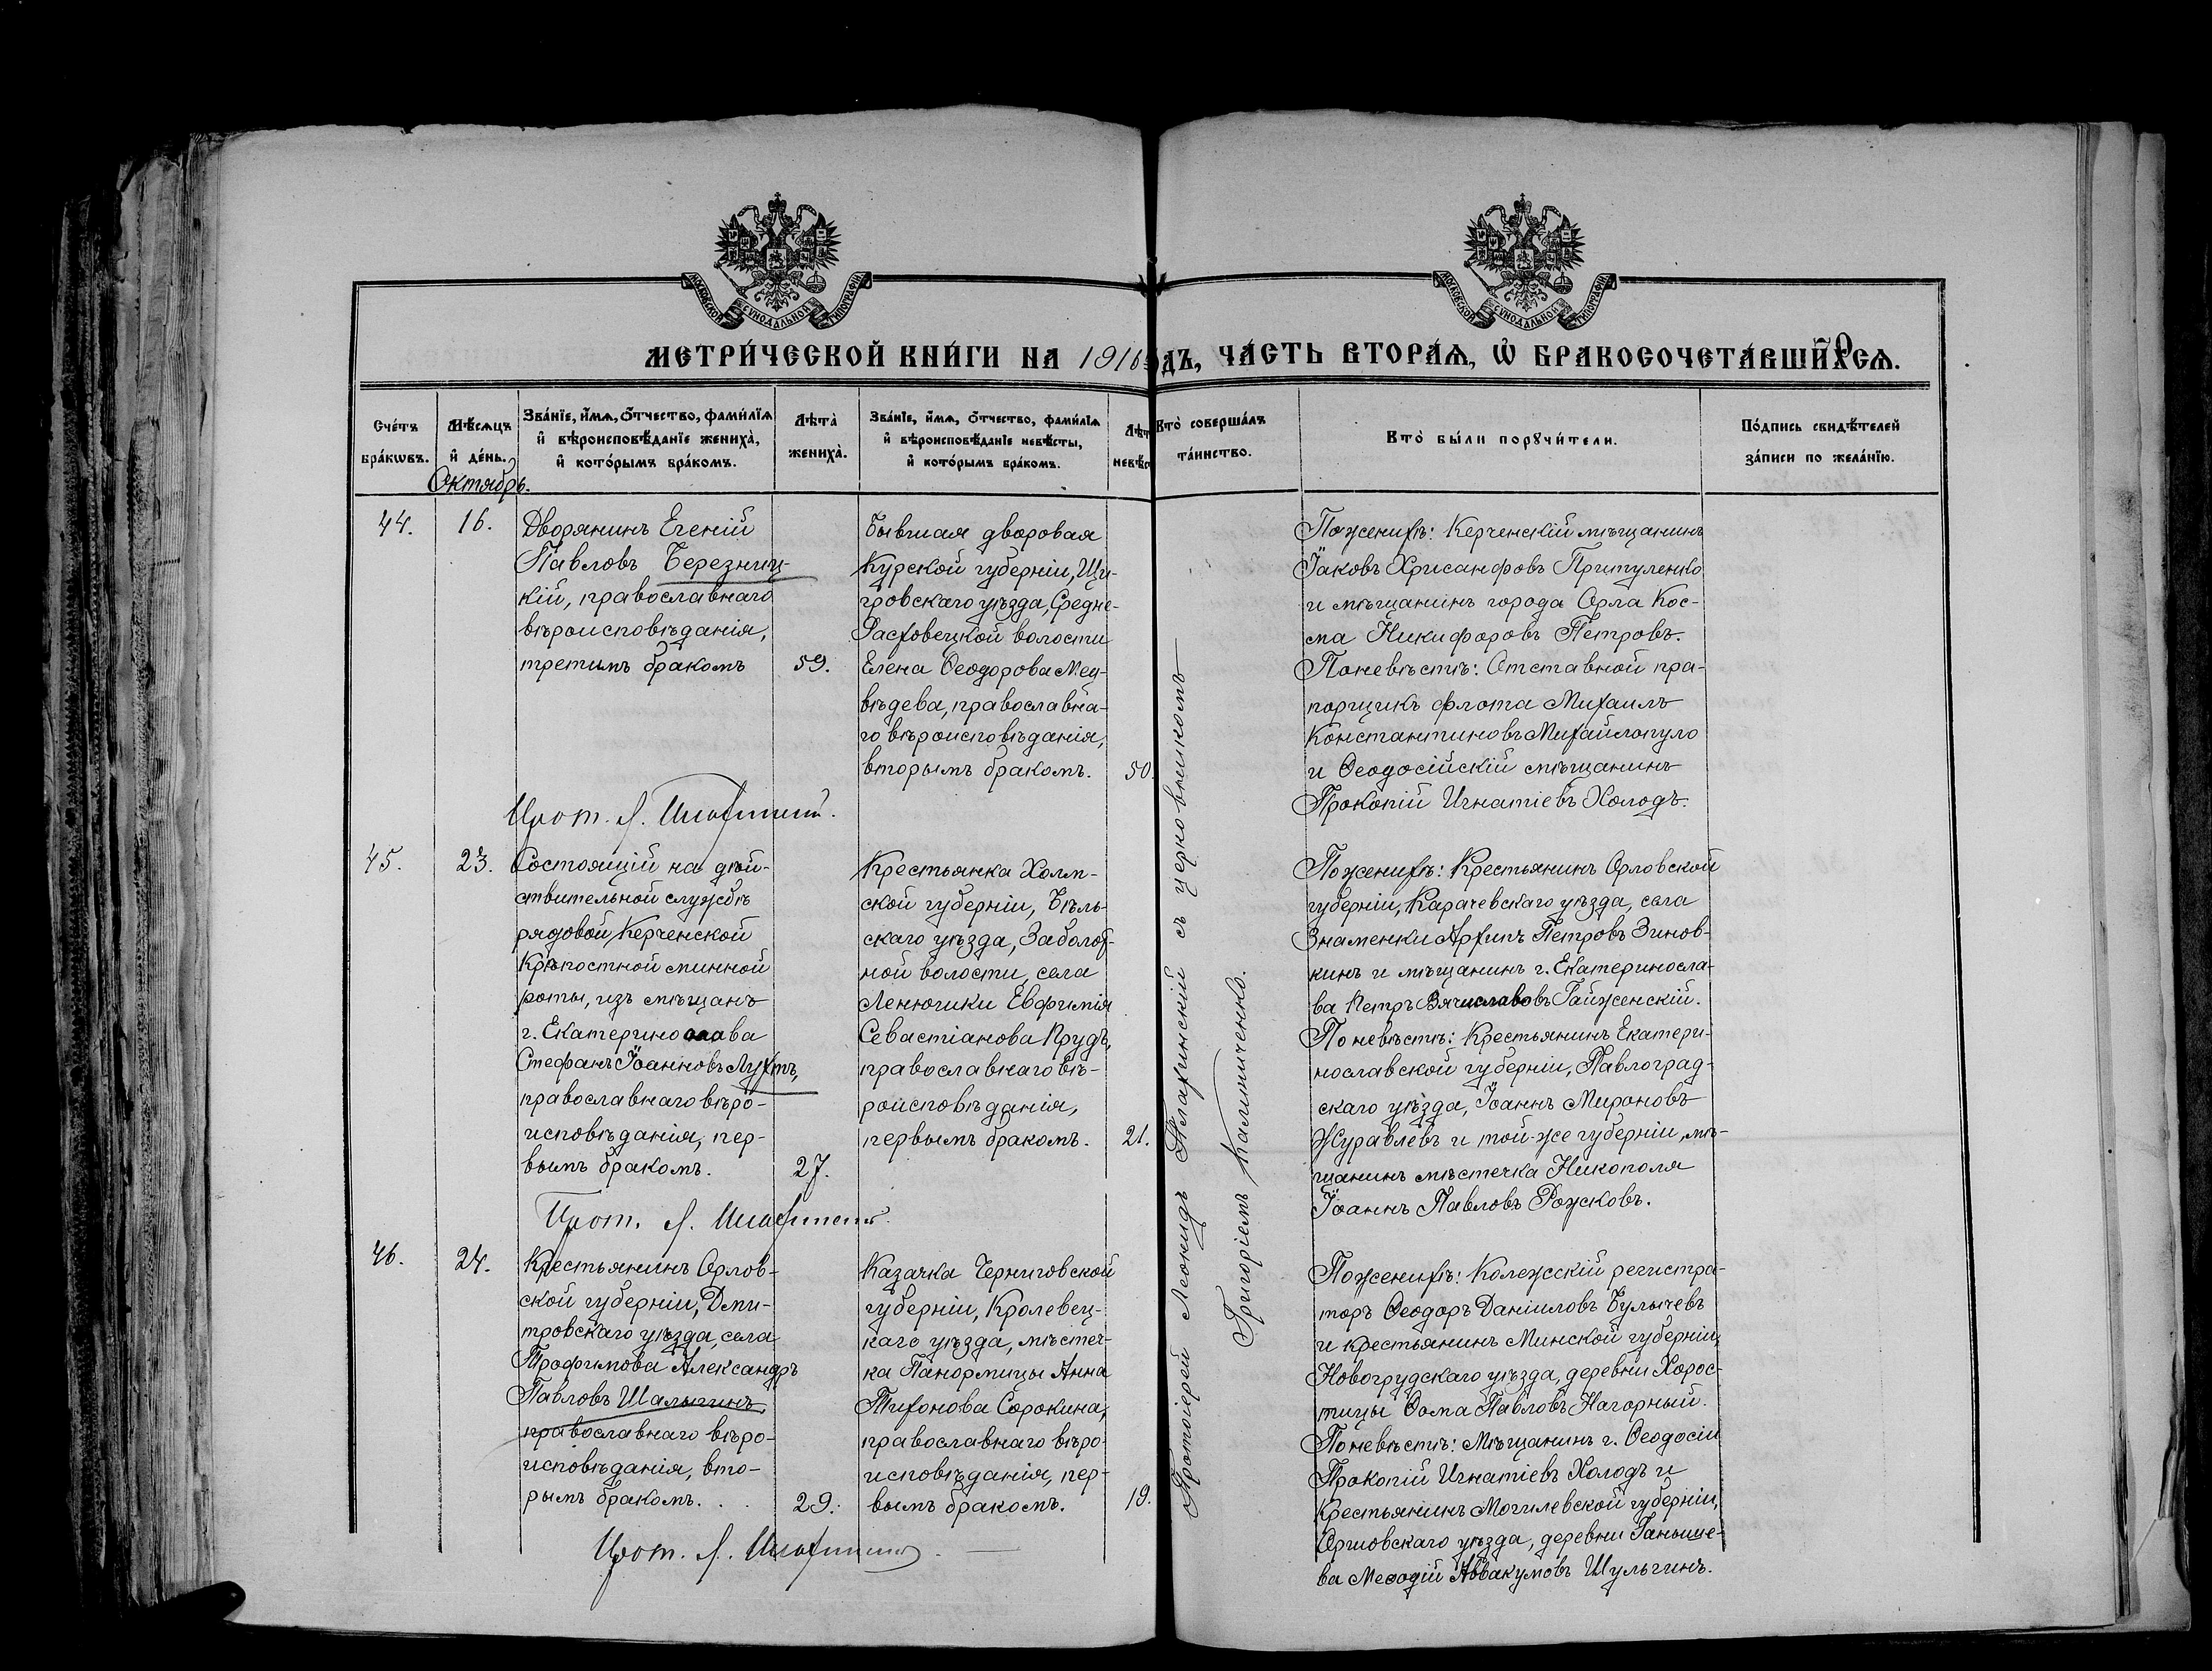 МОСКОВСКОЙ СѴНОДАЛЬНОЙ ТИПОГРАФІИ
МОСКОВСКОЙ СѴНОДАЛЬНОЙ ТИПОГРАФІИ
МЕТРИ́ЧЕСКОЙ КНИ́ГИ НА 1916 ДЪ, ЧА́СТЬ ВТОРА́Ѧ, Ѡ҆ БРАКОСОЧЕТА́ВШИХСѦ.
Сче́тъ
бра́кѡвъ.
Мѣ́сѧцъ
и҆ де́нь.
Октябрь.
Зва́нїе, и҆́мѧ, о҆́тчество, фами́лїѧ
и҆ вѣроисповѣ́данїе жениха̀,
и҆ кото́рымъ бра́комъ.
Лѣ́та̀
жениха̀.
Зва́нїе, и҆́мѧ, о҆́тчество, фами́лїѧ
и҆ вѣроисповѣ́данїе невѣ́сты,
и҆ кото́рымъ бра́комъ.
Лѣт
невѣс
Кто̀ соверша́лъ
та́инство.
Кто̀ бы́ли порꙋчи́тели.
По́дпись свидѣ́телей
за́писи по жела́нїю.
44.
16.
Дворянинъ Егеній
Павловъ Березниц-
кій, православнаго
вѣроисповѣданія,
третимъ бракомъ
59.
Бывшая дворовая
Курской губерніи, Щи-
гровскаго уѣзда, Средне-
Расховецкой волости
Елена Ѳеодорова Мед-
вѣдева, православна-
го вѣроисповѣданія,
вторымъ бракомъ.
50.
По женихѣ: Керченскій мѣщанинъ
Іаковъ Хрисанфовъ Притуленко
и мѣщанинъ города Орла Кос-
ма Никифоровъ Петровъ.
По невѣстѣ: Отставной пра-
порщикъ флота Михаилъ
Константиновъ Михайлопуло
и Ѳеодосійскій мѣщанинъ
Прокопій Игнатіевъ Холодъ.
Прот. Л.
45.
23.
Состоящій на дѣй-
ствительной службѣ
рядовой Керченской
Крѣпостной минной
роты, изъ мѣщанъ
г. Екатеринослава
Стефанъ Іоанновъ Лухтъ,
православнаго вѣро-
исповѣданія, пер-
вымъ бракомъ.
27.
Крестьянка Холм-
ской губерніи, Бѣль-
скаго уѣзда, Заболот-
ной волости, села
Ленючики Евфимія
Севастіанова Прудъ,
православнаго вѣ-
роисповѣданія,
первымъ бракомъ.
21.
По женихѣ: Крестьянинъ Орловской
губерніи, Карачевскаго уѣзда, села
Знаменки Архипъ Петровъ Зинов-
кинъ и мѣщанинъ г. Екатериносла-
ва Петръ Вячиславовъ Гайженскій.
По невѣстѣ: Крестьянинъ Екатери-
нославской губерніи, Павлоград-
скаго уѣзда, Іоаннъ Мироновъ
Журавлевъ и той-же губерніи, мѣ-
щанинъ мѣстечка Никополя
Іоаннъ Павловъ Рожковъ.
Прот. Л.
46.
24.
Крестьянинъ Орлов-
ской губерніи, Дми-
тровскаго уѣзда, села
Трофимова Александръ
Павловъ Шалыгинъ,
православнаго вѣро-
исповѣданія, вто-
рымъ бракомъ. . .
29.
Казачка Черниговской
губерніи, Кролевец-
каго уѣзда, мѣстеч-
ка Понормицы Анна
Тихонова Сорокина,
православнаго вѣро-
исповѣданія, пер-
вымъ бракомъ.
19.
По женихѣ: Колежскій регистра-
торъ Ѳеодоръ Даніиловъ Булычевъ
и крестьянинъ Минской губерніи,
Новогрудскаго уѣзда, деревни Хорос-
тицы Ѳома Павловъ Нагорный.
По невѣстѣ: Мѣщанинъ г. Ѳеодосіи
Прокопій Игнатіевъ Холодъ и
Крестьянинъ Могилевской губерніи,
Оршовскаго уѣзда, деревни Ганьше-
ва Меѳодій Аввакумовъ Шульгинъ.
Прот. Л.
Протоіерей Леонидъ съ церковникомъ
Григоріемъ Калиниченко.